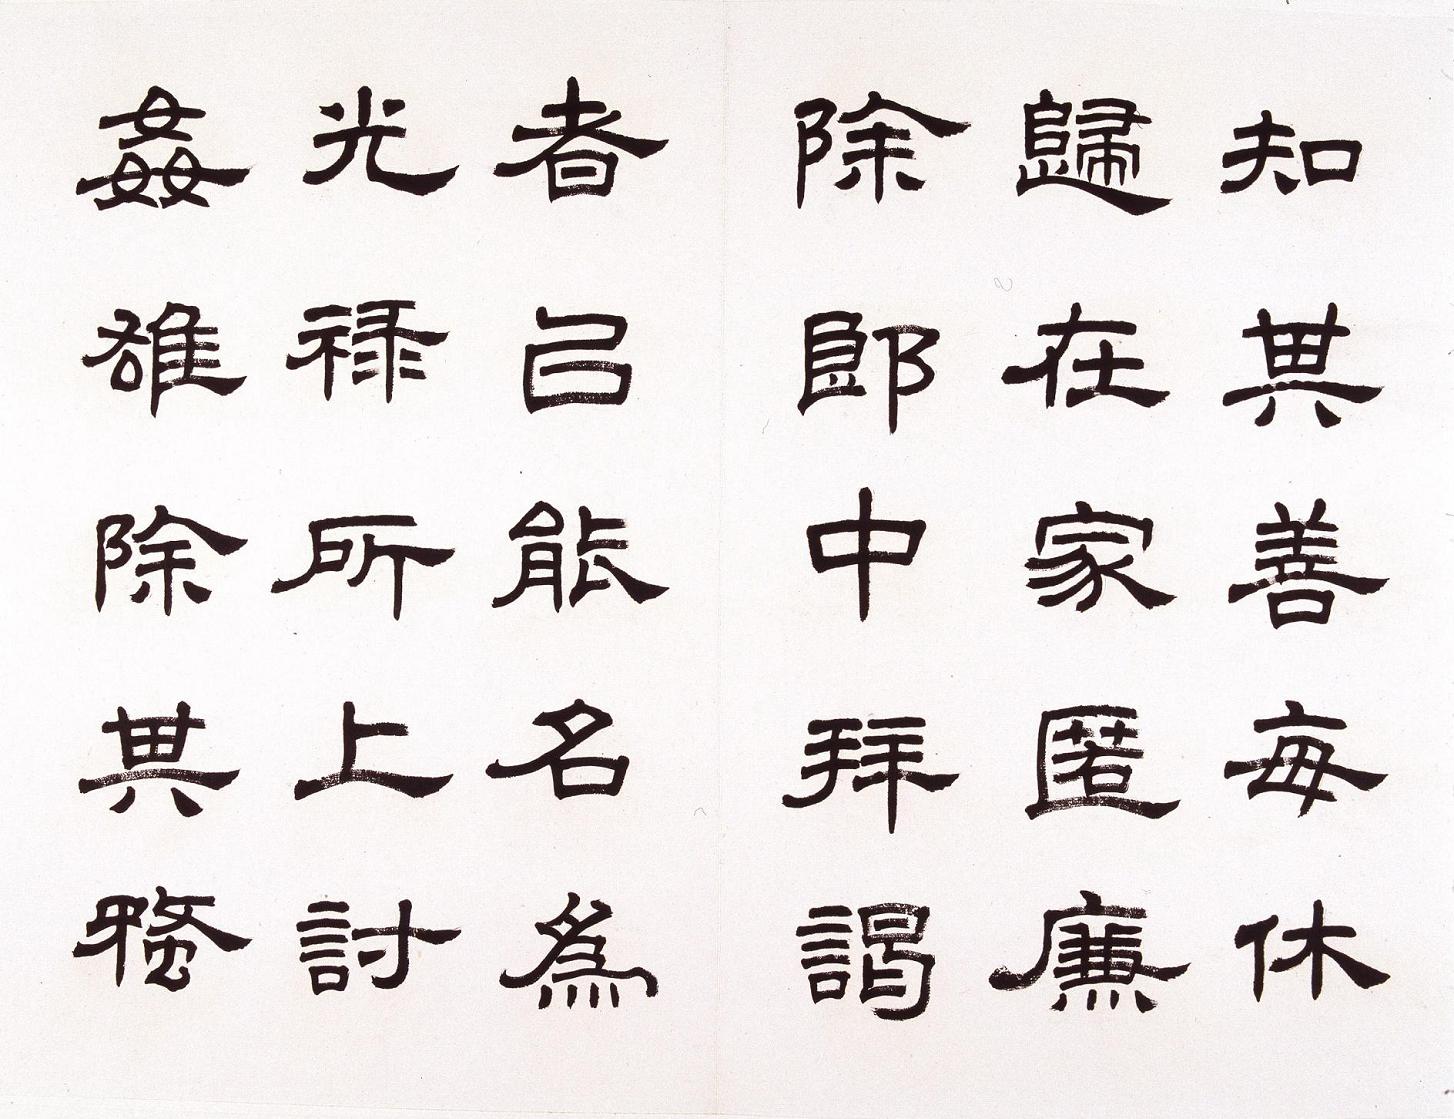 知其善每休
歸在家匿廉
除郎中拜謁
者㠯能名爲
光祿所上討
姦雄除其蝥